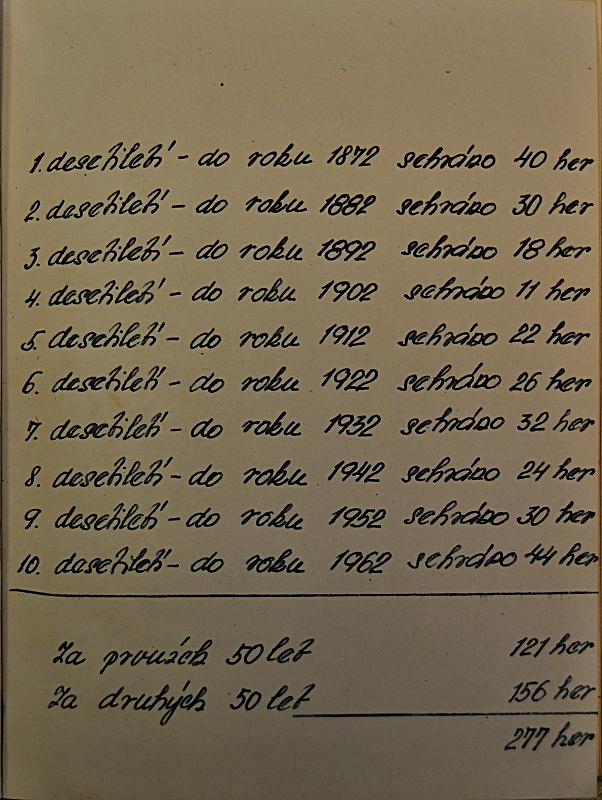 1. desetiletí - do roku 1872 sehráno 40 her
2. desetiletí - do roku 1882 sehráno 30 her
3. desetiletí - do roku 1892 sehráno 18 her
4. desetiletí - do roku 1902 sehráno 11 her
5. desetiletí - do roku 1912 sehráno 22 her
6. desetiletí - do roku 1922 sehráno 26 her
7. desetiletí - do roku 1932 sehráno 32 her
8. desetiletí - do roku 1942 sehráno 24 her
9. desetiletí - do roku 1952 sehráno 30 her
10. desetiletí - do roku 1962 sehráno 44 her
Za prvních 50 let 121 her
Za druhých 50 let 156 her
277 her